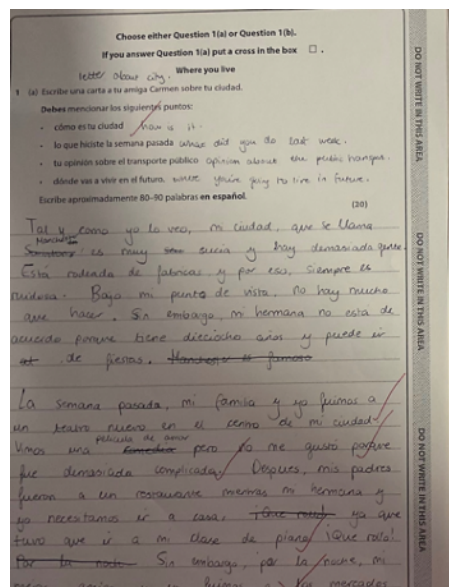 Choose either Question 1(a) or Question 1(b).
If you answer Question 1(a) put a cross in the box ☐ .
letter about city. Where you live
1 (a) Escribe una carta a tu amiga Carmen sobre tu ciudad.
Debes mencionar los siguientes puntos:
• cómo es tu ciudad how is it.
• lo que hiciste la semana pasada what did you do last week.
• tu opinión sobre el transporte público opinion about the public transport.
• dónde vas a vivir en el futuro. where you're going to live in future.
Escribe aproximadamente 80–90 palabras en español.
(20)
Tal y como yo lo veo, mi ciudad, que se llama
Manchester es muy sucia y hay demasiada gente.
Está rodeada de fabricas y por eso, siempre es
ruidosa. Bajo mi punto de vista, no hay mucho
que hacer. Sin embargo, mi hermana no esta de
acuerdo porque tiene dieciocho años y puede ir
de fiestas. Manchester is famoso
La semana pasada, mi familia y yo fuimos a
un teatro nuevo en el centro de mi ciudad.
Vimos una pelicula de amor pero no me gustó porque
fue demasiada complicada. Despues, mis padres
fueron a un restaurante mientras mi hermana y
yo necesitamos ir a casa, ya que
tuve que ir a mi clase de piano ¡Que rollo!
Por la noche Sin embargo, por la noche, mi
fuimos a mercados
DO NOT WRITE IN THIS AREA
DO NOT WRITE IN THIS AREA
DO NOT WRITE IN THIS AREA